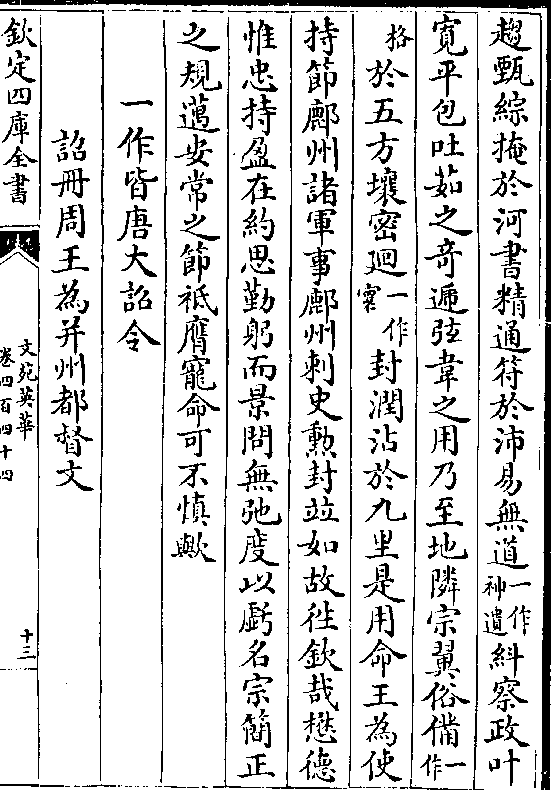 趨甄綜掩於河書精通符於沛易無道一作神遺糾察政叶
寛平包吐茹之竒逓弦韋之用乃至地隣宗翼俗備一作
格於五方壤密廻一作寰封潤沾於九里是用命王為使
持節鄜州諸軍事鄜州刺史勲封竝如故徃欽哉懋德
惟忠持盈在約思勤躬而景問無弛度以虧名宗簡正
之規邁安常之節祗膺寵命可不慎歟
一作皆唐大詔令
詔冊周王為并州都督文
欽定四庫全書
文苑英華
卷四百四十四
十三